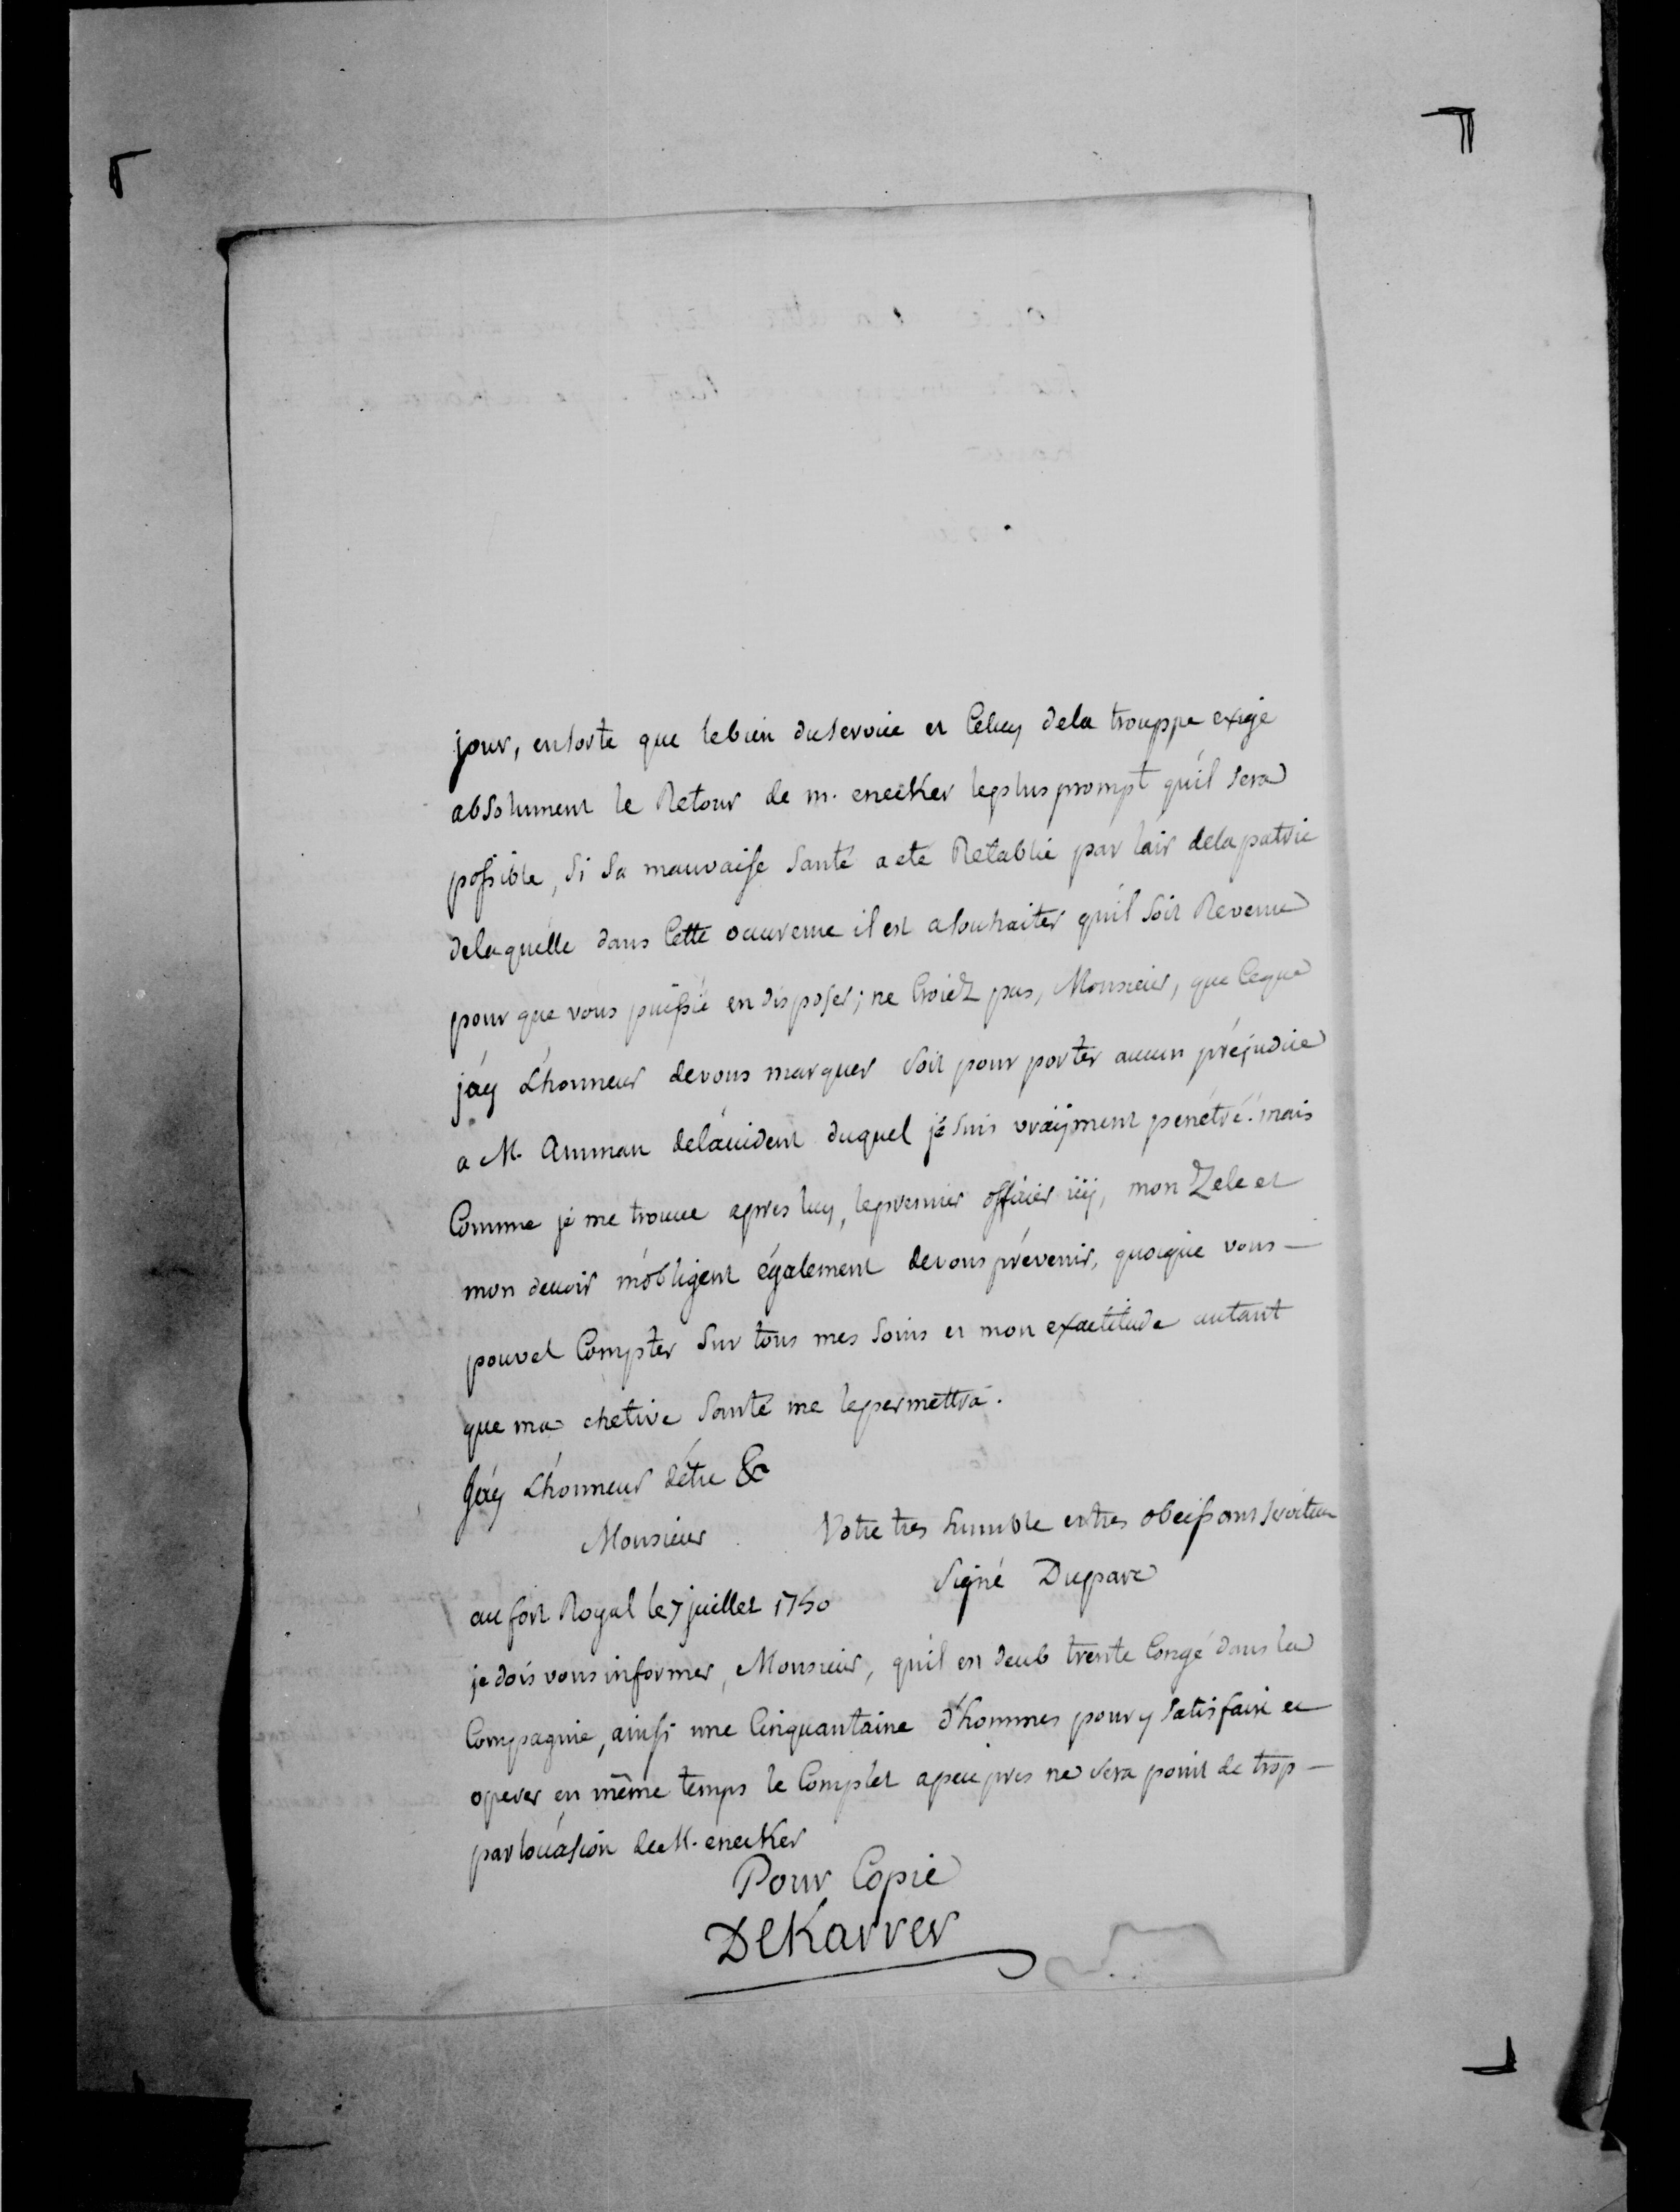 jour, ensorte que le bien du service et Celuy dela trouppe exige
absolument le Retour de m. enecker le plus prompt qu'il sera
possible, Si Sa mauvaise Santé a eté Retablie par lair dela patrie
delaquelle dans Cette occurence il est a souhaiter qu'il Soit Revenu
pour que vous puissié en disposer; ne Croiez pas, Monsieur, que Ceque
j'ay L'honneur de vous marquer Soit pour porter aucun préjudice
a M. Amman de l'accident duquel je Suis vraÿment penétré. mais
Comme je me trouve apres luy, le premier officier icÿ, mon Zele et
mon devoir m'obligent également de vous prévenir, quoique vous —
pouvel Compter Sur tous mes Soins et mon exactitude autant
que ma chetive Santé me le permettra.
J'ay L'honneur d'étre &
Monsieur Votre tres humble et tres obeissant serviteur
Signé Duparc
au fort Royal le 7 juillet 1750
je dois vous informer, Monsieur, qu'il est deub trente Congé dans la
Compagnie, ainsi une Cinquantaine d'hommes pour y Satisfaire et
operer en même temps le Complet a peu pres ne Sera point de trop —
par l'ocasion de M. enecker
Pour Copie
DeKarrer